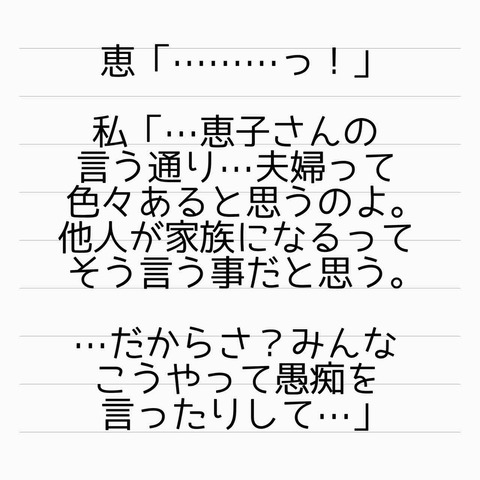 恵「………っ！」
私「…恵子さんの
言う通り…夫婦って
色々あると思うのよ。
他人が家族になるって
そう言う事だと思う。
…だからさ？みんな
こうやって愚痴を
言ったりして…」